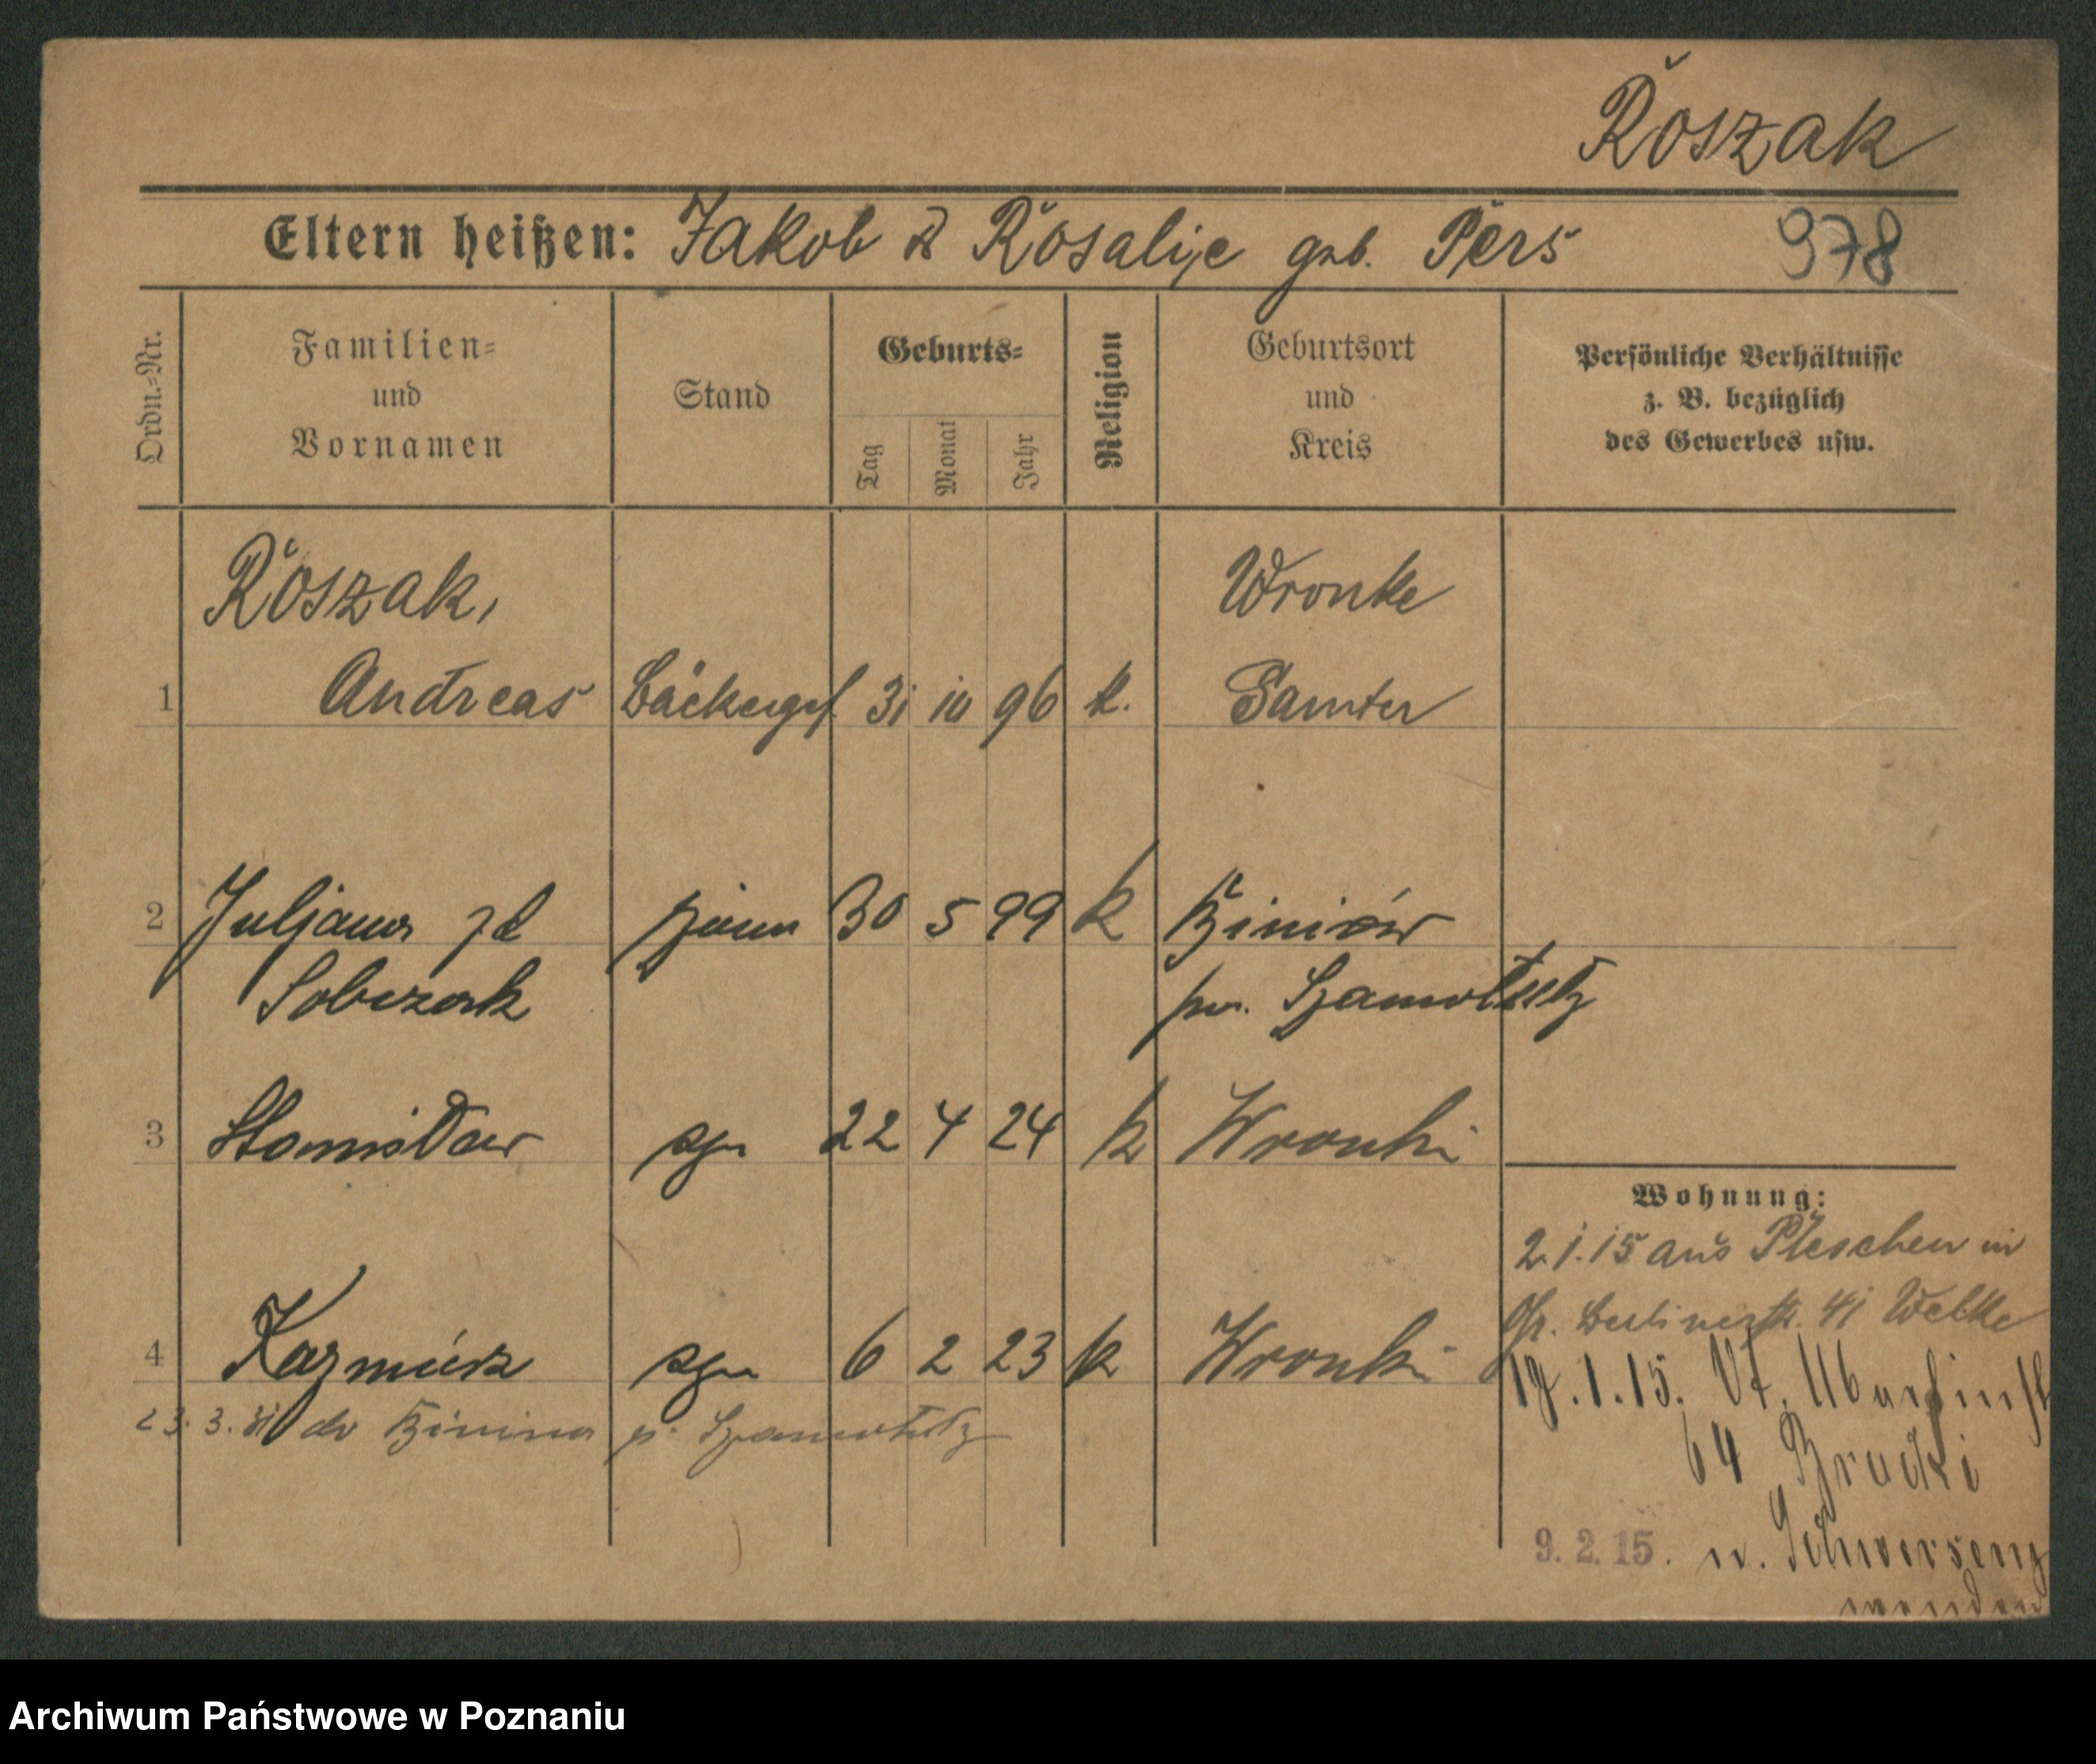 Roszak
Eltern heißen: Jakob & Rosalije geb. Pers 978
Ordn.=Nr.
Familien=
und
Vornamen
Stand
Geburts=
Tag
Monat
Jahr
Religion
Geburtsort
und
Kreis
Persönliche Verhältnisse
z. B. bezüglich
des Gewerbes usw.
Roszak, Wronke
1 Andreas Bäckerges. 31 10 96 k. Samter
2 30 5 99 k
Sobczak pow. Szamotuły
3 Stanisław syn 22 4 24 k Wronki
4 Kazmierz syn 6 2 23 k Wronki
23. 3. 31 do p. Szamotuły
Wohnung:
2.1.15 aus Pleschen in
Gr. Berlinerstr. 41 Welke
19.1.15.
64
9. 2. 15. n. Schwersenz
wenden
Archiwum Państwowe w Poznaniu